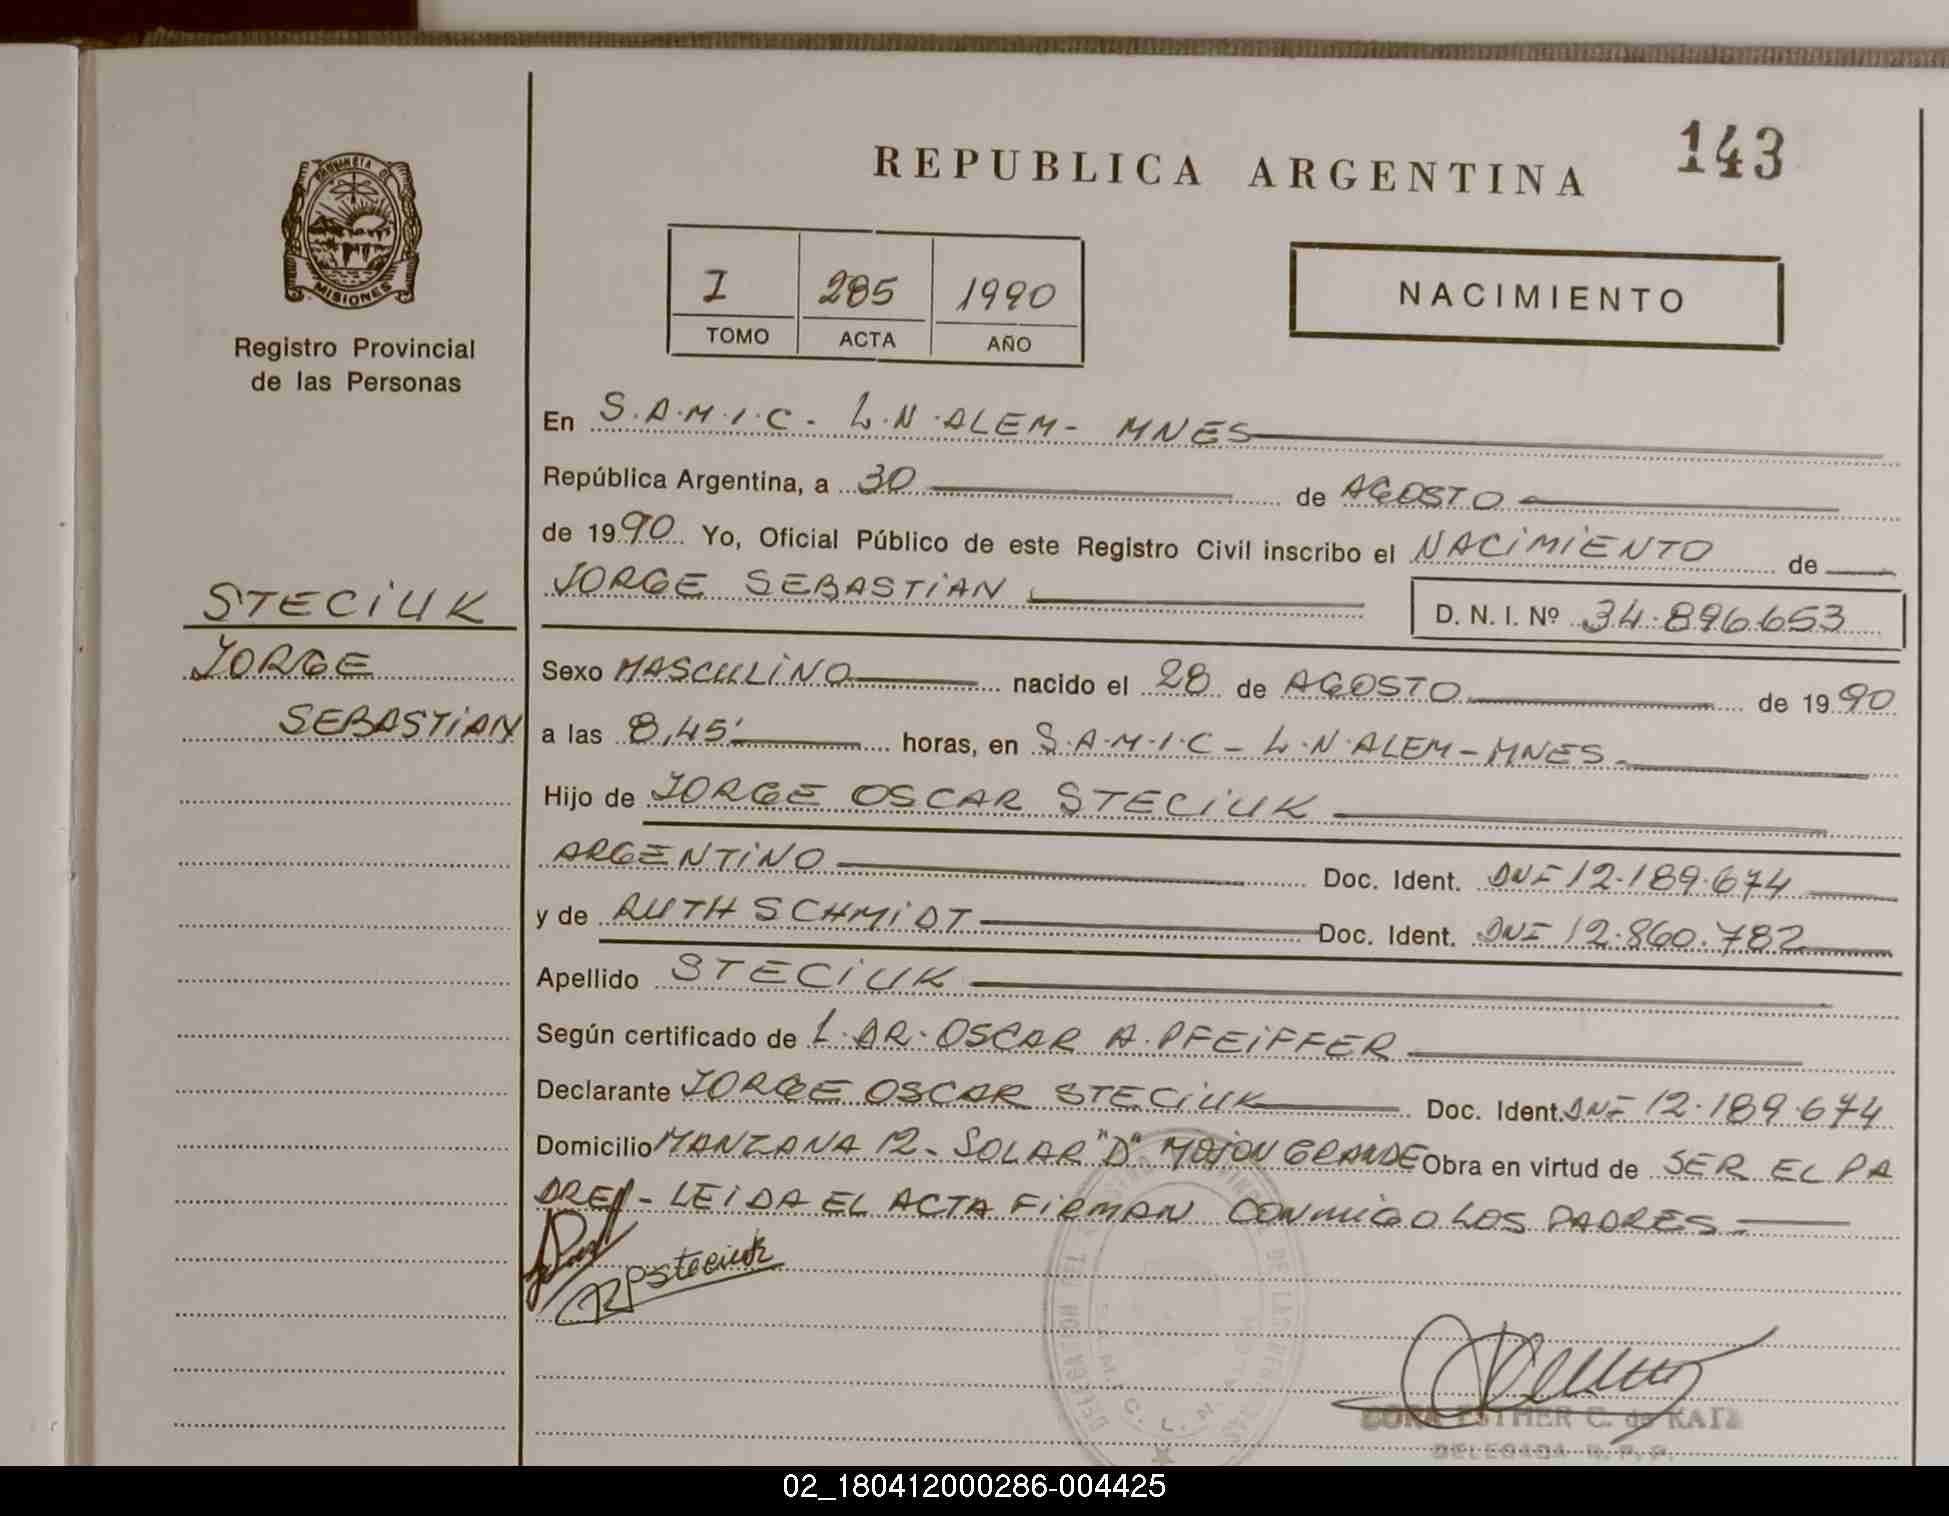 143
REPUBLICA ARGENTINA
PROVINCIA DE
MISIONES
Registro Provincial
de las Personas
I 285 1990
TOMO ACTA AÑO
NACIMIENTO
En S.A.M.I.C- L.N.ALEM- MNES
República Argentina, a 30 de AGOSTO
de 1990 Yo, Oficial Público de este Registro Civil inscribo el NACIMIENTO de
JORGE SEBASTIAN D. N. I. Nº 34.896.653
STECIUK
JORGE
SEBASTIAN
Sexo MASCULINO nacido el 28 de AGOSTO de 1990
a las 8,45' horas, en S.A.M.I.C- L.N.ALEM-MNES-
Hijo de JORGE OSCAR STECIUK
ARGENTINO Doc. Ident. DNI 12.189.674
y de RUTH SCHMIDT Doc. Ident. DNI 12.860.782
Apellido STECIUK
Según certificado de L.DR. OSCAR A. PFEIFFER
Declarante JORGE OSCAR STECIUK Doc. Ident. DNI 12.189.674
Domicilio MANZANA 12- SOLAR "D" MOJON GRANDE Obra en virtud de SER EL PA
DRE - LEIDA EL ACTA FIRMAN CONMIGO LOS PADRES-
RPSteciuk
ESTHER C. de KATZ
DELEGADA R. P. P.
02_180412000286-004425